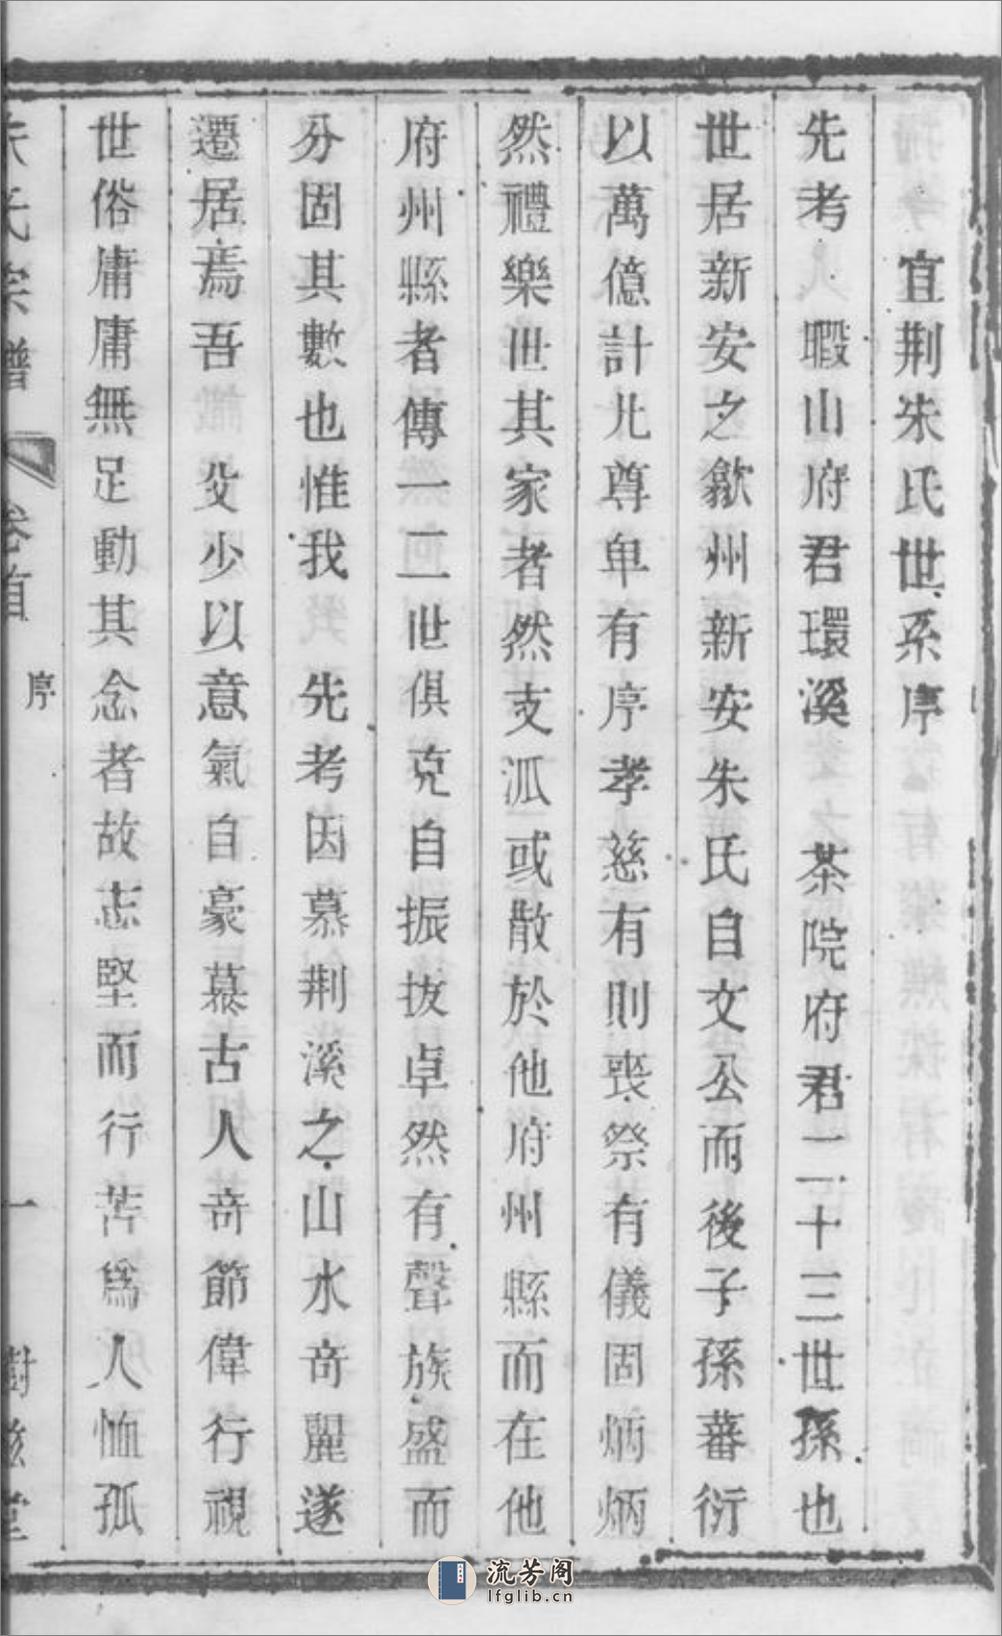 宜荆朱氏世系序
先考 暇山府君環溪 茶院府君二十三世孫也
世居新安之歙州新安朱氏自文公而後子孫蕃衍
以萬億計凡尊卑有序孝慈有則喪祭有儀固炳炳
然禮樂世其家者然支派或散於他府州縣而在他
府州縣者傳一二世俱克自振拔卓然有聲族盛而
分固其數也惟我 先考因慕荆溪之山水奇麗遂
遷居焉吾 父少以意氣自豪慕古人奇節偉行視
世俗庸庸無足動其念者故志堅而行苦為人恤孤
朱氏宗譜 卷首 序 一 樹滋堂
流芳阁
lfglib.cn